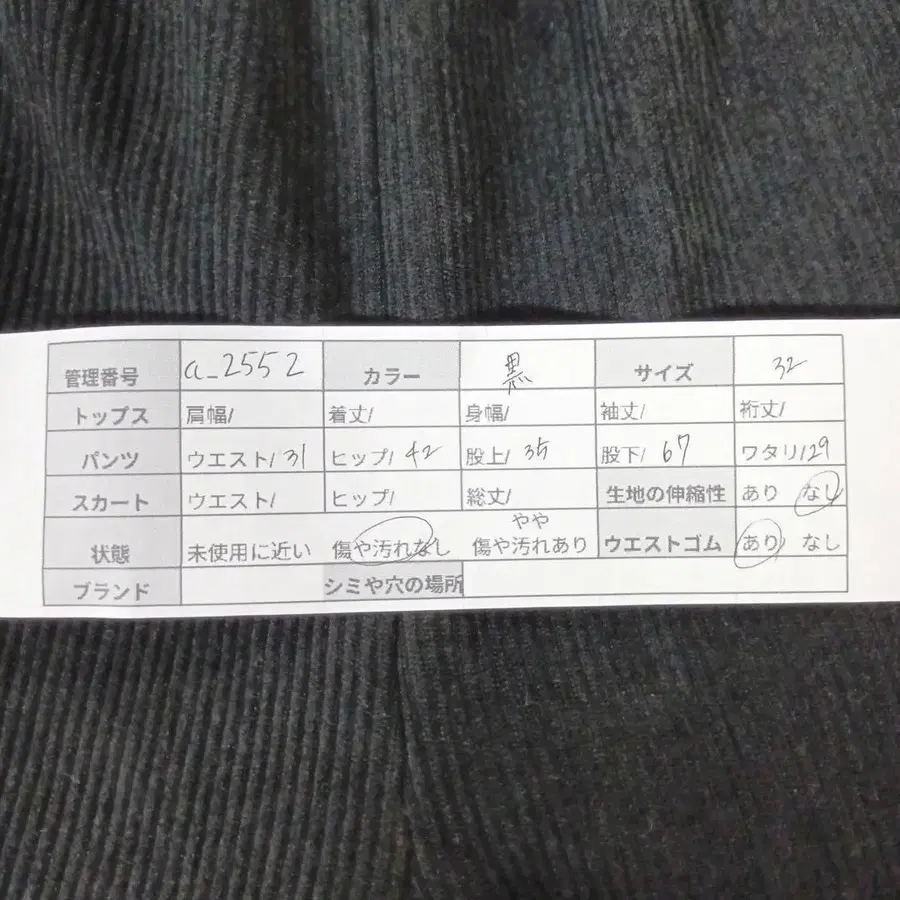 管理番号 a_2552 カラー 黒 サイズ 32
トップス 肩幅/ 着丈/ 身幅/ 袖丈/ 裄丈/
パンツ ウエスト/ 31 ヒップ/ 42 股上/ 35 股下/ 67 ワタリ/29
スカート ウエスト/ ヒップ/ 総丈/ 生地の伸縮性 あり なし
状態 未使用に近い 傷や汚れなし やや傷や汚れあり ウエストゴム あり なし
ブランド シミや穴の場所